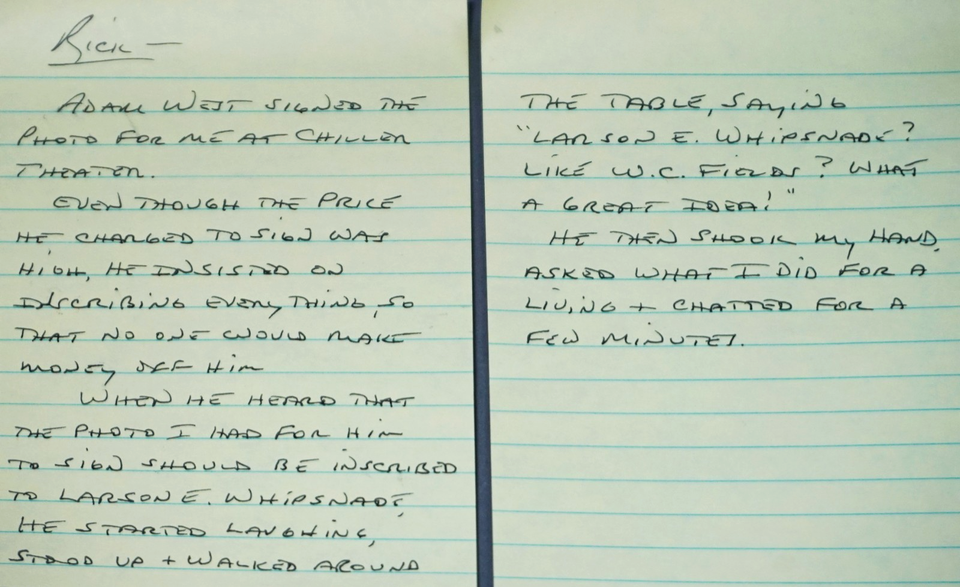 Rick —
ADAM WEST SIGNED THE
PHOTO FOR ME AT CHILLER
THEATER.
EVEN THOUGH THE PRICE
HE CHARGED TO SIGN WAS
HIGH, HE INSISTED ON
INSCRIBING EVERYTHING, SO
THAT NO ONE WOULD MAKE
MONEY OFF HIM
WHEN HE HEARD THAT
THE PHOTO I HAD FOR HIM
TO SIGN SHOULD BE INSCRIBED
TO LARSON E. WHIPSNADE,
HE STARTED LAUGHING,
STOOD UP + WALKED AROUND
THE TABLE, SAYING
"LARSON E. WHIPSNADE?
LIKE W.C. FIELDS? WHAT
A GREAT IDEA!"
HE THEN SHOOK MY HAND,
ASKED WHAT I DID FOR A
LIVING + CHATTED FOR A
FEW MINUTES.